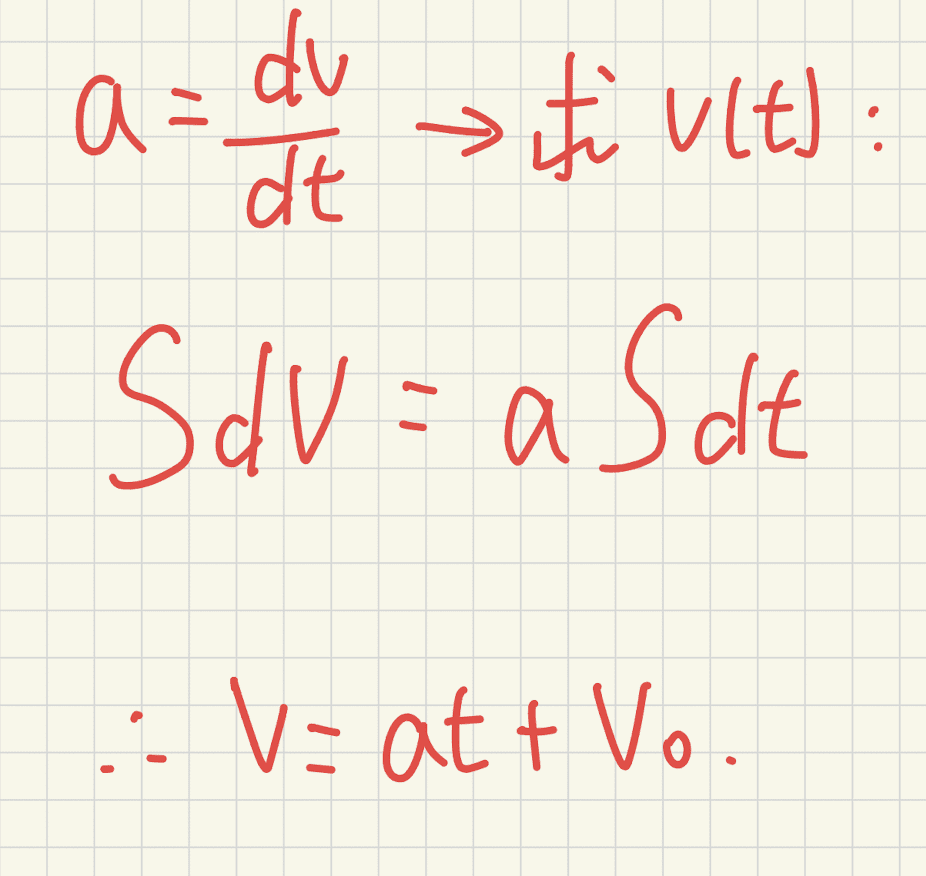 a = dv/dt → 求 v(t) :
∫dV = a∫dt
∴ V = at + V₀ .